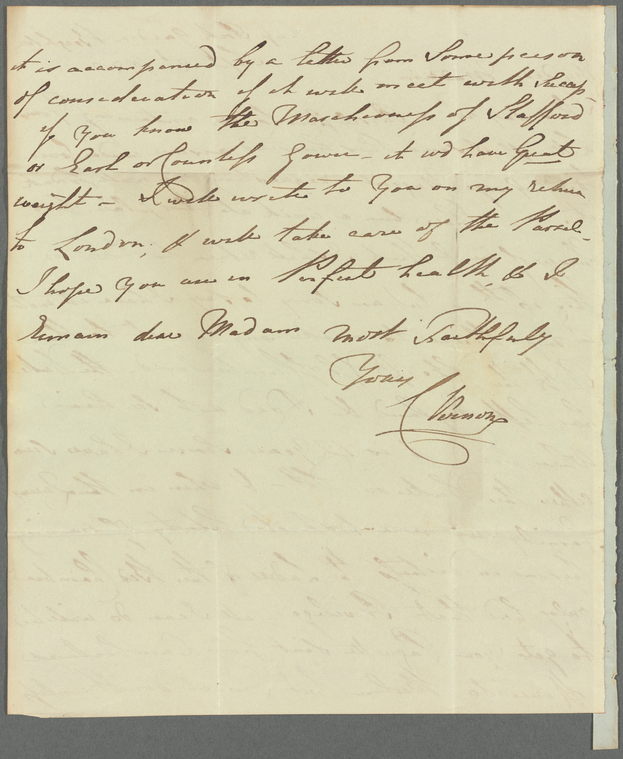 it is accompanied by a letter from Some person
of consideration if it will meet with Success
if You know the Marchioness of Stafford
or Earl or Countess Gower - it wd have Great
weight - I will write to You on my return
to London, & will take care of the Parcel -
I hope You are in Perfect health, & I
Remain dear Madam most Faithfully
Yours
C Vernon